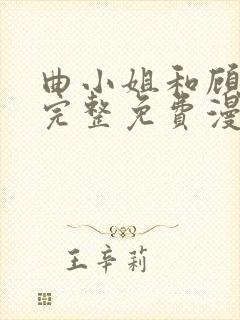 曲小姐和顾
完整免費漫
王辛莉